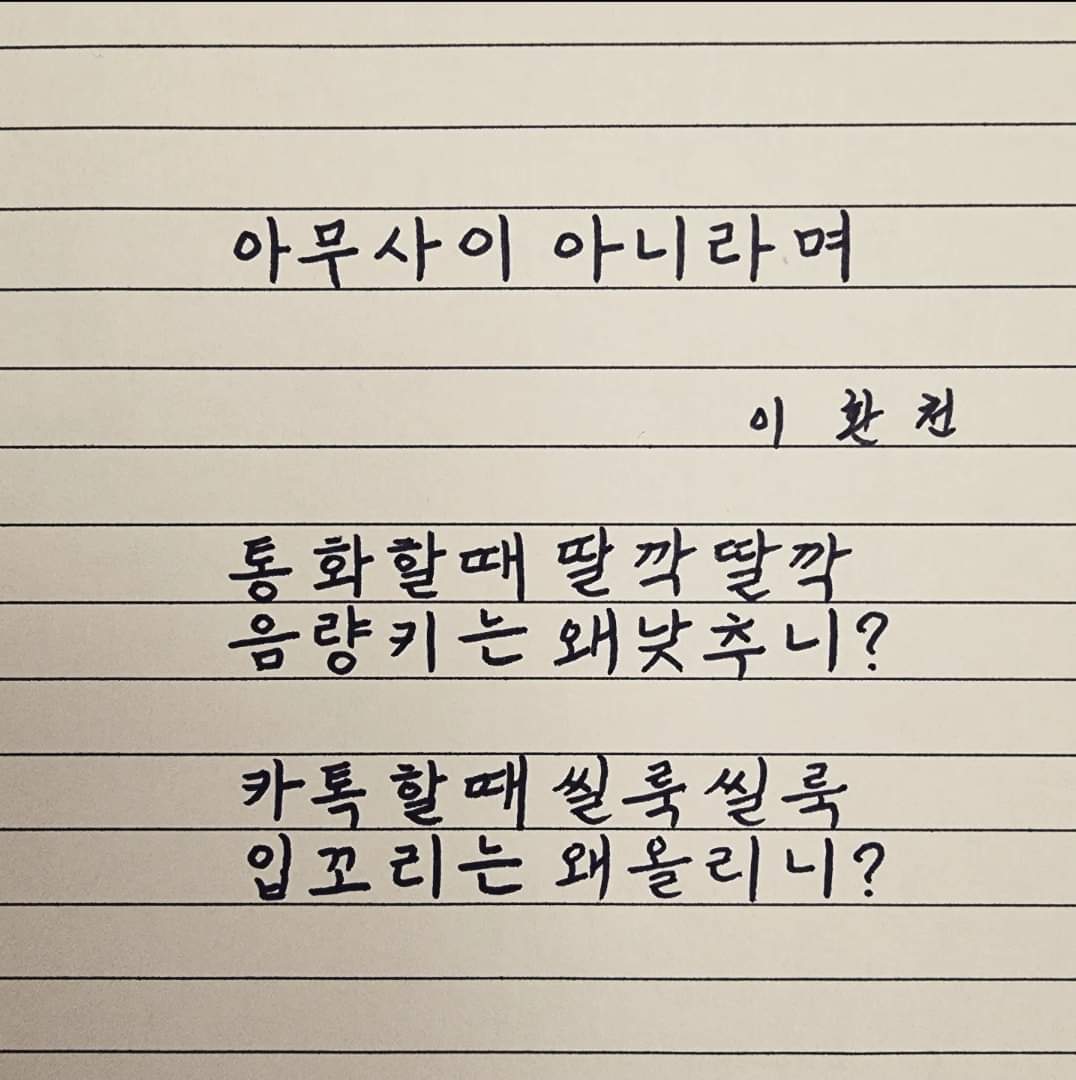 아무사이 아니라며
이 환 천
통화할때 딸깍딸깍
음량키는 왜낮추니?
카톡할때 씰룩씰룩
입꼬리는 왜올리니?